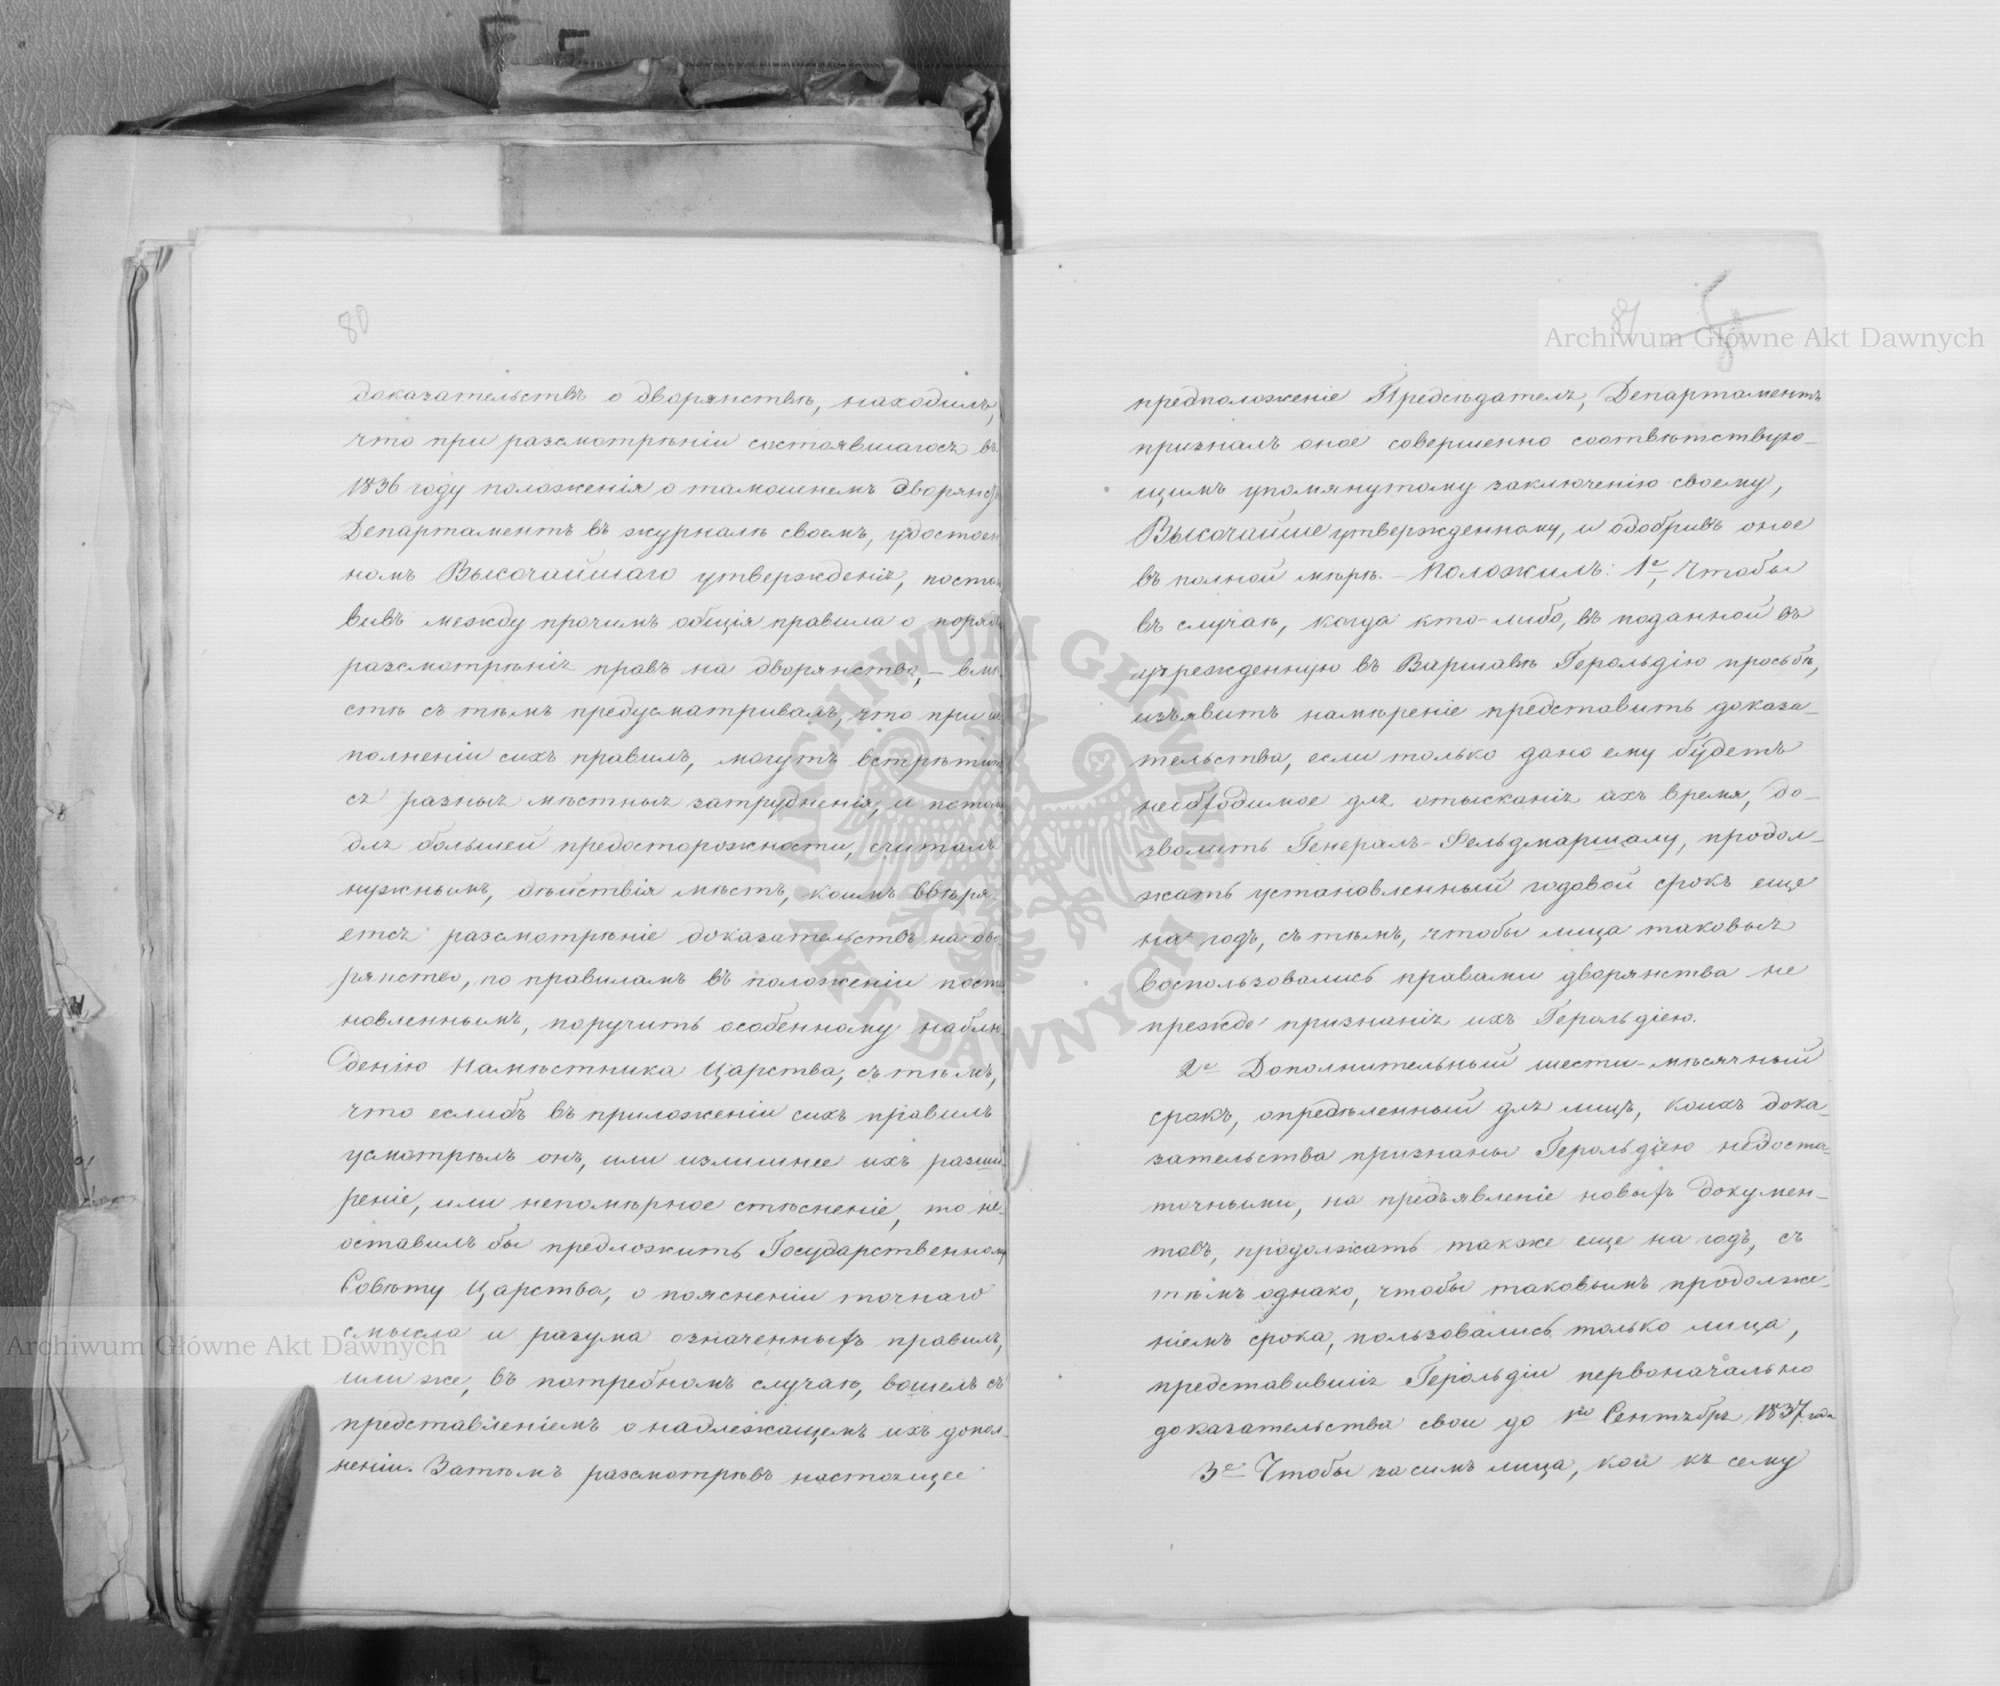 80
доказательствъ о дворянствѣ, находилъ,
что при разсмотрѣніи состоявшагося въ
1836 году положенія о тамошнемъ дворянс
Департаментъ въ журналѣ своемъ, удостоен
номъ Высочайшаго утвержденія, поста
вивъ между прочимъ общія правила о поряд
разсмотрѣнія правъ на дворянство, – вмѣ
стѣ съ тѣмъ предусматривалъ, что при ис
полненіи сихъ правилъ, могутъ встрѣтить
ся разныя мѣстныя затрудненія, и потом
для большей предосторожности, считалъ
нужнымъ, дѣйствія мѣстъ, коимъ ввѣря-
ется разсмотрѣніе доказательствъ на дво
рянство, по правиламъ въ положеніи поста
новленнымъ, поручить особенному наблю-
денію Намѣстника Царства, съ тѣмъ,
что еслибъ въ приложеніи сихъ правилъ
усмотрѣлъ онъ, или излишнее ихъ разши-
реніе, или непомѣрное стѣсненіе, то не-
оставилъ бы предложить Государственному
Совѣту Царства, о поясненіи точнаго
смысла и разума означенныхъ правилъ,
или же, въ потребномъ случаѣ, вошелъ съ
представленіемъ о надлежащемъ ихъ допол-
неніи. Затѣмъ разсмотрѣвъ настоящее
81
предположеніе Предсѣдателя, Департаментъ
призналъ оное совершенно соотвѣтствую-
щимъ упомянутому заключенію своему,
Высочайше утвержденному, и одобривъ оное
въ полной мѣрѣ. – Положилъ: 1е, Чтобы
въ случаѣ, когда кто-либо, въ поданной въ
учрежденную въ Варшавѣ Герольдію просьбѣ,
изъявитъ намѣреніе представить доказа-
тельства, если только дано ему будетъ
необходимое для отысканія ихъ время, до-
зволить Генералъ-Фельдмаршалу, продол-
жать установленный годовой срокъ еще
на годъ, съ тѣмъ, чтобы лица таковыя
воспользовались правами дворянства не
прежде признанія ихъ Герольдіею.
2е Дополнительный шести-мѣсячный
срокъ, опредѣленный для лицъ, коихъ дока-
зательства признаны Герольдіею недоста-
точными, на предъявленіе новыхъ докумен-
товъ, продолжать также еще на годъ, съ
тѣмъ однако, чтобы таковымъ продолже-
ніемъ срока, пользовались только лица,
представившія Герольдіи первоначально
доказательства свои до 1го Сентября 1837 года
3е Чтобы за симъ лица, кои къ сему
Archiwum Główne Akt Dawnych
Archiwum Główne Akt Dawnych
ARCHIWUM GŁÓWNE AKT DAWNYCH